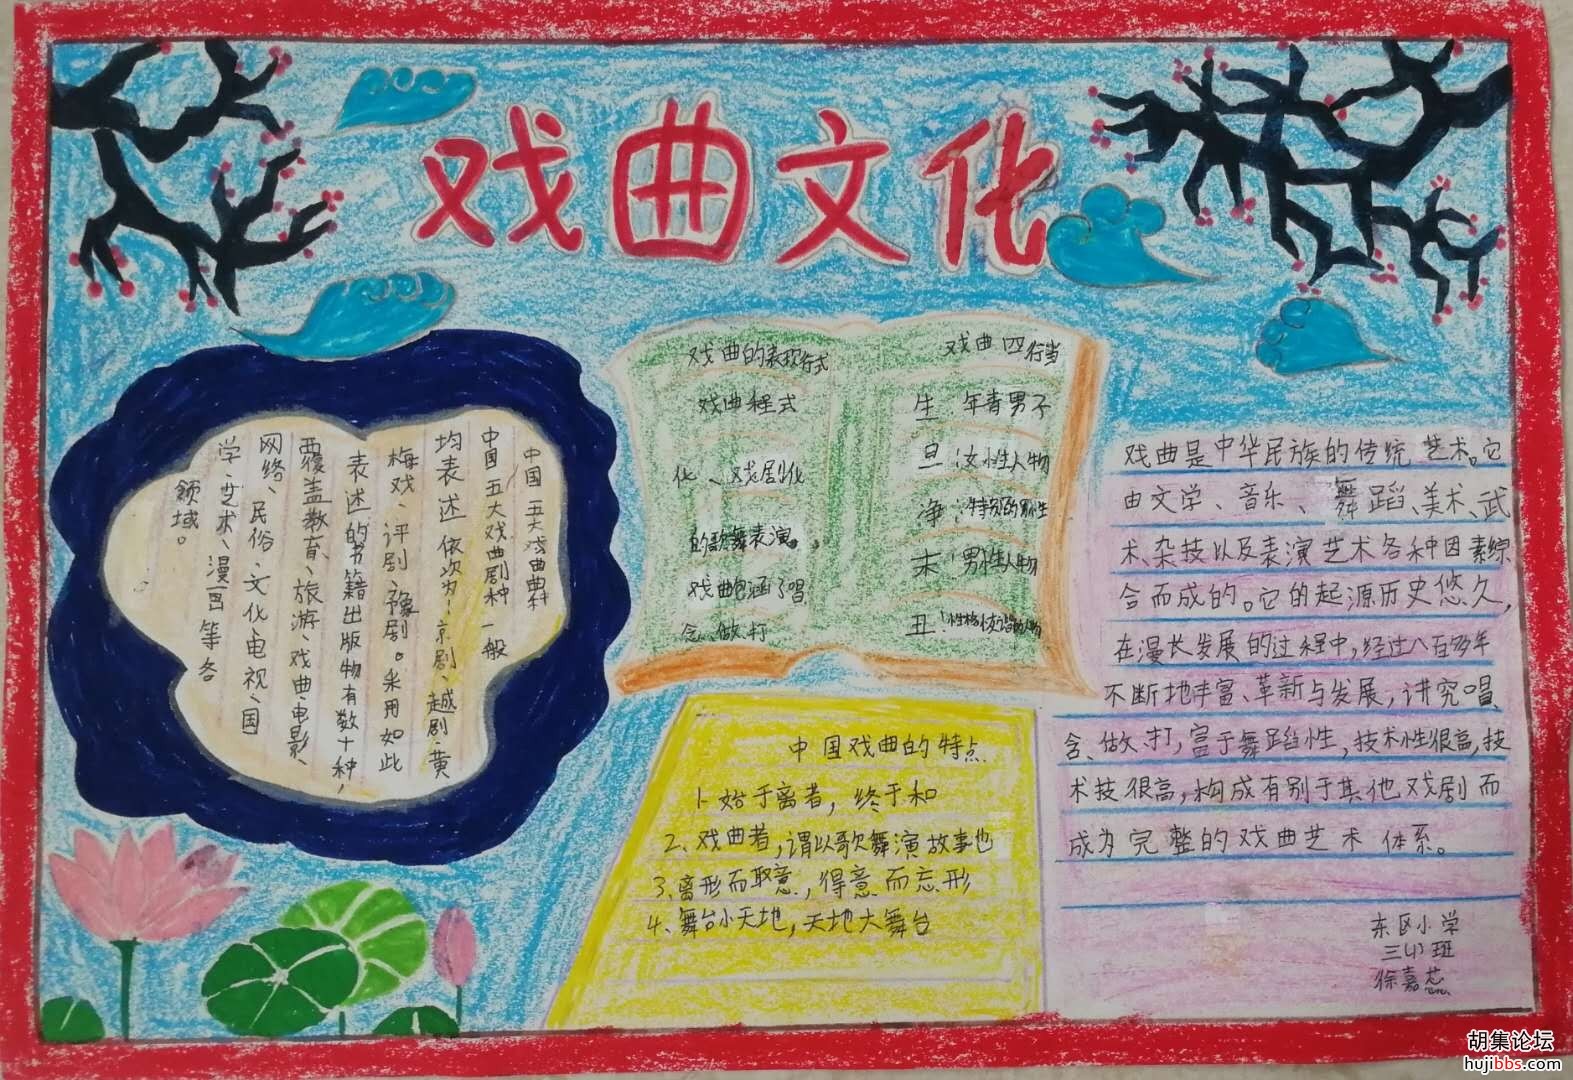 戏曲文化
中国五大戏曲曲种
中国五大戏曲剧种一般
均表述依次为:京剧、越剧、黄
梅戏、评剧、豫剧。采用如此
表述的书籍出版物有数十种,
覆盖教育、旅游、戏曲、电影、
网络、民俗、文化、电视、国
学、艺术、漫画等各
领域。
戏曲的表现行式
戏曲程式
化、戏剧化
的歌舞表演。
戏曲包涵了唱
念、做、打
戏曲四行当
生 年青男子
旦:女性人物
净:特别的男性
末:男性人物
丑:性格
中国戏曲的特点
1、始于离者,终于和
2、戏曲者,谓以歌舞演故事也
3、离形而取意,得意而忘形
4、舞台小天地,天地大舞台
戏曲是中华民族的传统艺术。它
由文学、音乐、舞蹈、美术、武
术、杂技以及表演艺术各种因素综
合而成的。它的起源历史悠久,
在漫长发展的过程中,经过八百多年
不断地丰富、革新与发展,讲究唱、
念、做、打,富于舞蹈性,技术性很高,技
术技很高,构成有别于其他戏剧而
成为完整的戏曲艺术体系。
东区小学
三(1)班
徐嘉芯
胡集论坛
hujibbs.com